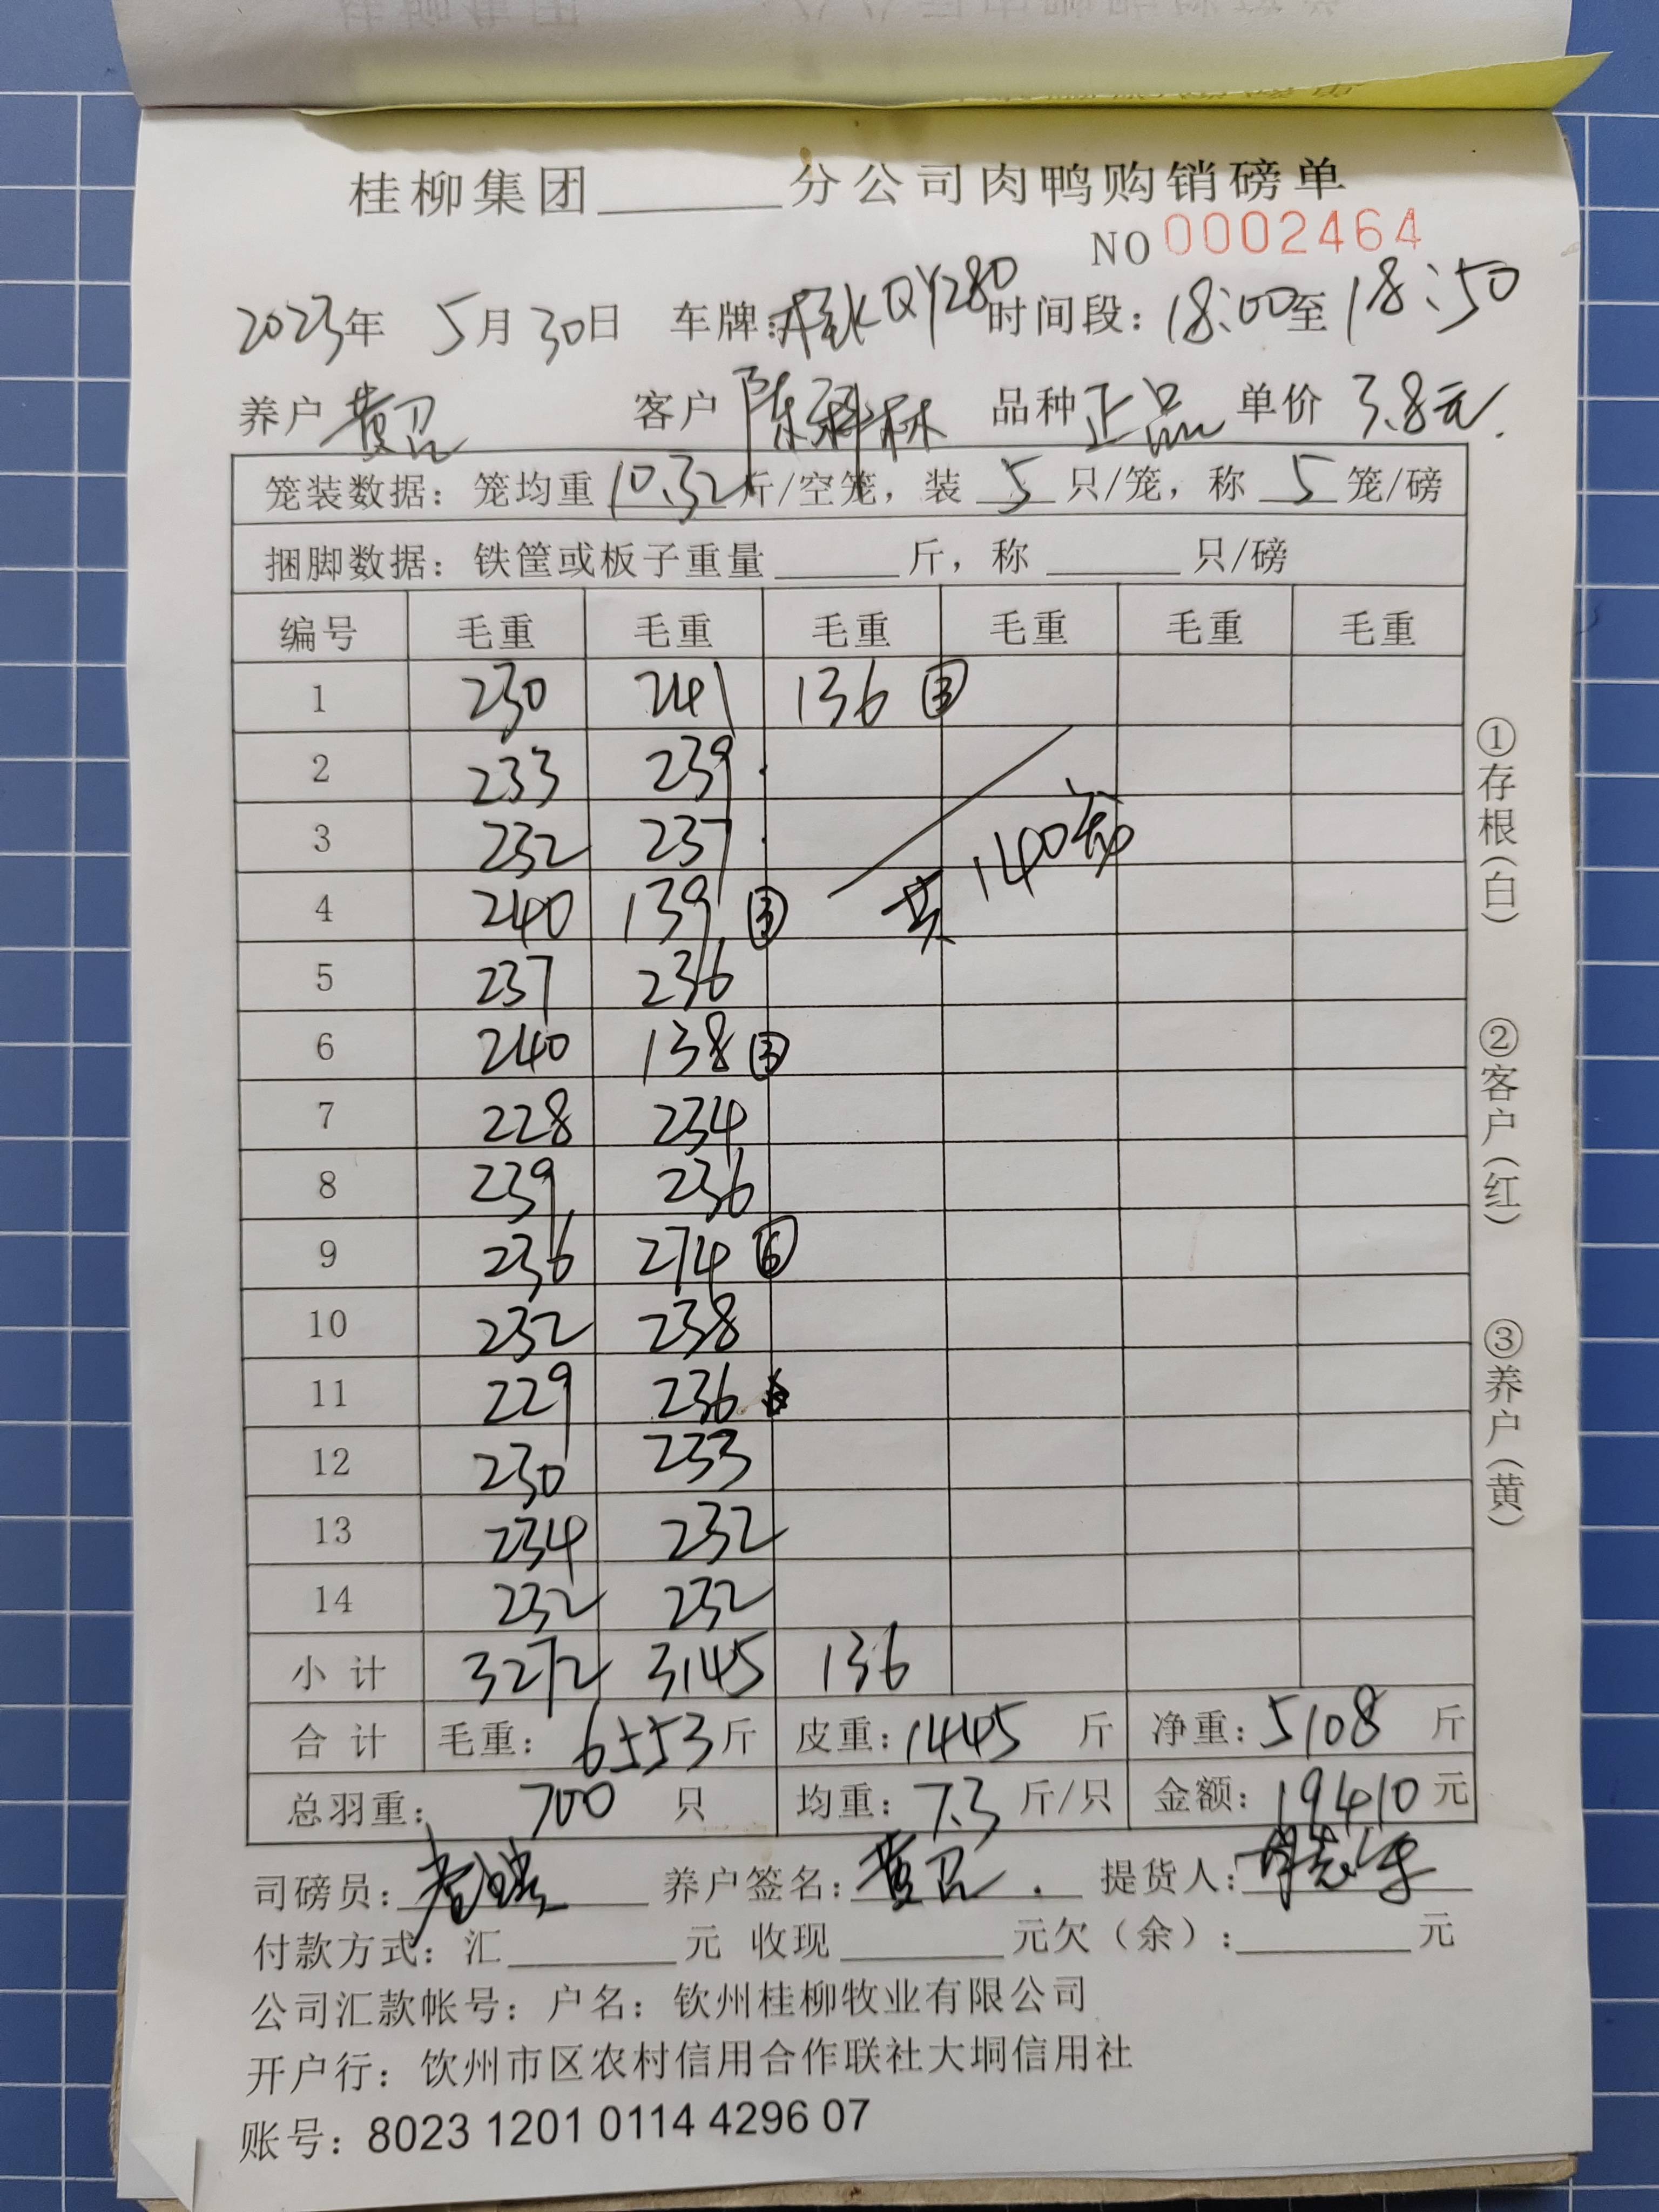 桂柳集团______分公司肉鸭购销磅单
NO 0002464
2023年 5月30日 车牌: QY280 时间段: 18:00至18:50
养户 黄召 客户 陈科林 品种 正品 单价 3.8元.
笼装数据: 笼均重 10.32 斤/空笼, 装 5 只/笼, 称 5 笼/磅
捆脚数据: 铁筐或板子重量______斤, 称______只/磅
编号 毛重 毛重 毛重 毛重 毛重 毛重
1 230 241 136 ③
2 233 239
3 232 237
4 240 139 ③
5 237 236
6 240 138 ③
7 228 234
8 239 236
9 236 274 ⑥
10 232 238
11 229 236
12 230 233
13 234 232
14 232 232
共140笼
小计 3272 3145 136
合计 毛重: 6553斤 皮重: 1445 斤 净重: 5108 斤
总羽重: 700 只 均重: 7.3 斤/只 金额: 19410元
司磅员: 养户签名: 黄召. 提货人:
付款方式: 汇______元 收现______元欠(余):______元
公司汇款帐号: 户名: 钦州桂柳牧业有限公司
开户行: 钦州市区农村信用合作联社大垌信用社
账号: 8023 1201 0114 4296 07
①存根(白) ②客户(红) ③养户(黄)